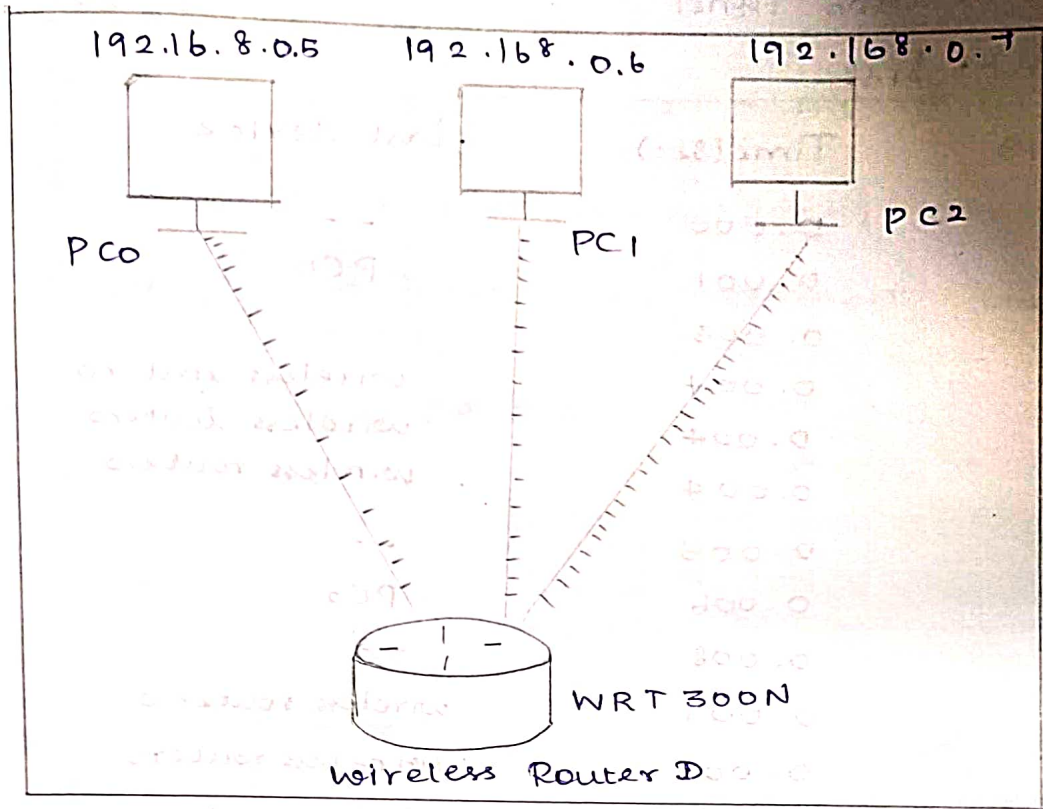 192.16.8.0.5 192.168.0.6 192.168.0.7
PC0 PC1 PC2
WRT 300N
Wireless Router D